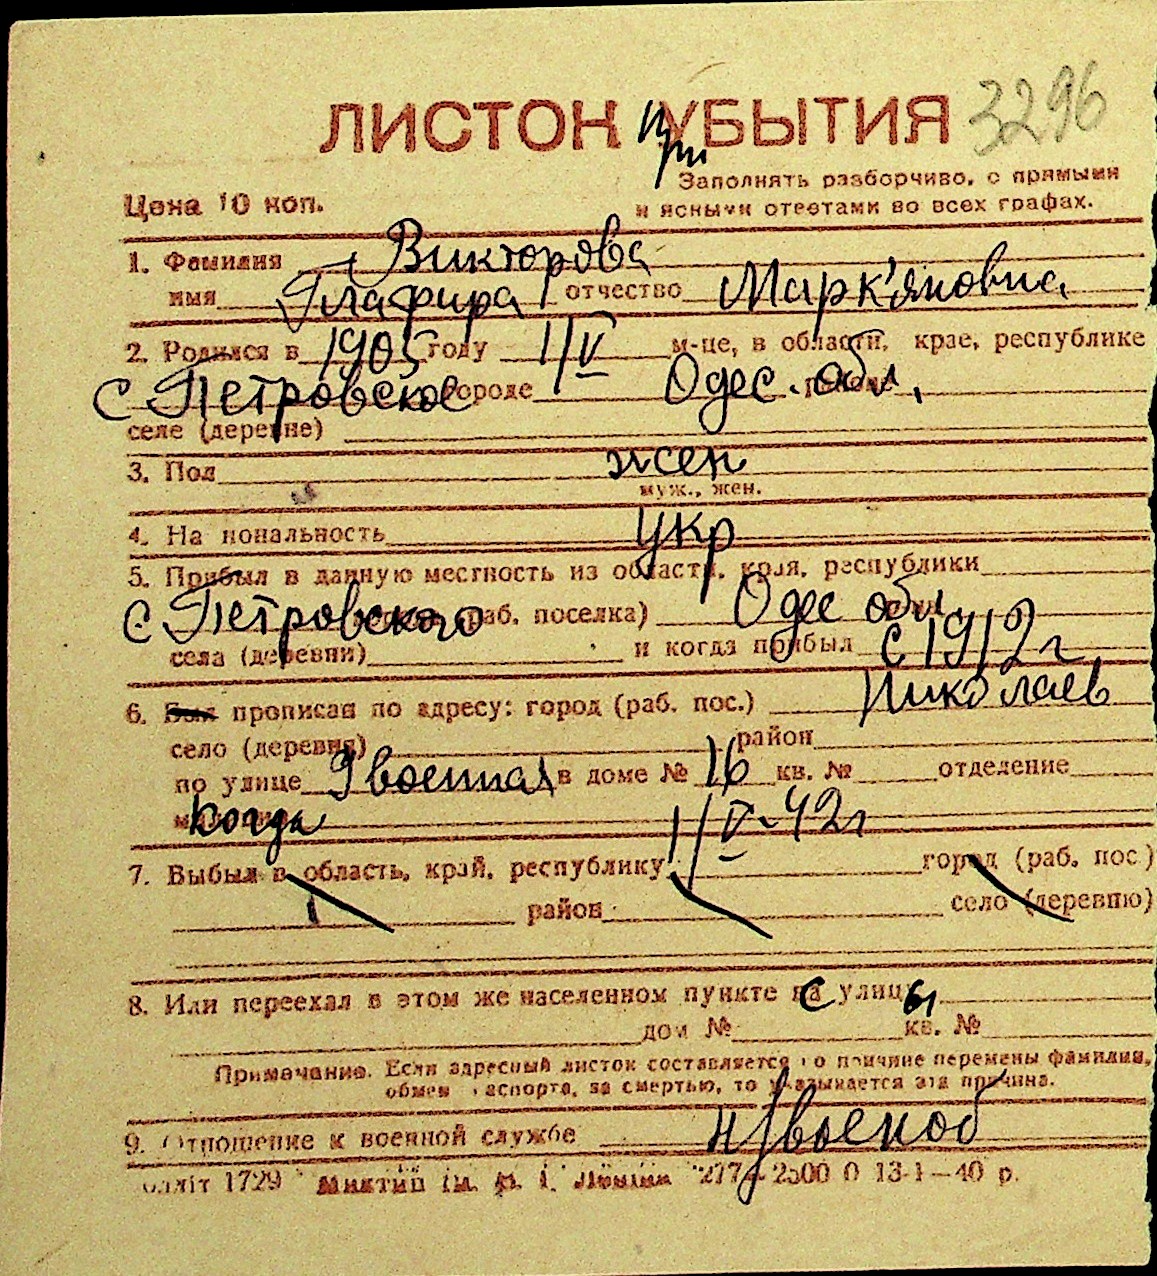 3296
ЛИСТОК При УБЫТИЯ
Заполнять разборчиво, с прямыми
Цена 10 коп.
и ясными ответами во всех графах.
1. Фамилия Викторова
имя Глафира отчество Марк'яновна
2. Родился в 1905 году 1/V м-це, в области, крае, республике
с Петровское городе Одес. обл,
селе (деревне)
3. Пол жен
муж., жен.
4. Национальность укр
5. Прибыл в данную местность из области, края, республики
с Петровского раб. поселка) Одес обл
села (деревни) и когда прибыл с 1912 г
6. Был прописан по адресу: город (раб. пос.) Николаев
село (деревня) район
по улице 9 военная в доме № 16 кв. № отделение
когда 1/V-42г
7. Выбыл в область, край, республику город (раб. пос)
район село (деревню)
8. Или переехал в этом же населенном пункте с улицы
дом № кв. №
Примечание. Если адресный листок составляется по причине перемены фамилии,
обмен паспорта, за смертью, то указывается эта причина.
9. Отношение к военной службе н/военоб
1729 277 - 2500 0 13-1-40 р.